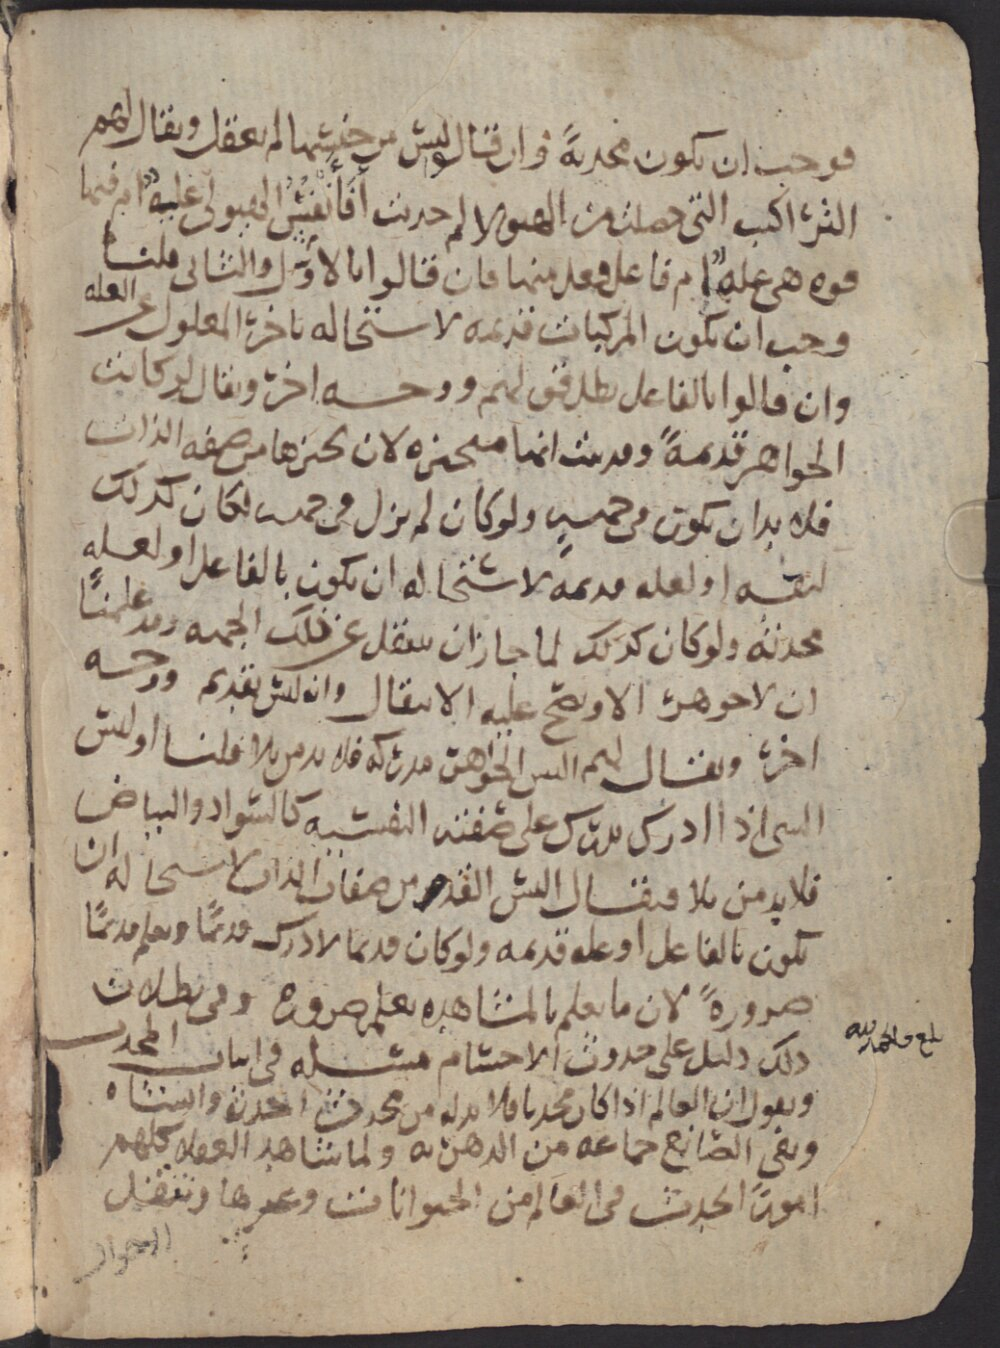 فوجب ان تكون محدثة وان قال ليس من جنسها لم يعقل ويقال لهم
التراكيب التي حصلت من الهيولا لم حدثت أفأنفس الهيولى علة ام فيها
قوه هي علة ام فاعل فعل منها فان قالوا بالاول والثاني قلنا
وجب ان تكون المركبات قديمه لاستحاله تاخر المعلول عن العله
وان قالوا بالفاعل بطل قولهم ووجه اخر ويقال لو كانت
الجواهر قديمةً وقد ثبت انها متحيزه لان تحيزها من صفه الذات
فلا بد ان تكون في جهه ولو كان لم يزل في جهه لكان كذلك
لنفسه او لعله قديمه لاستحاله ان يكون بالفاعل او لعله
محدثه ولو كان كذلك لما جاز ان ينتقل عن تلك الجهه وقد علمنا
ان لا جوهر الا ويصح عليه الانتقال وانه ليس بقديم ووجه
اخر ويقال لهم اليس الجواهر مدركه فلا بد من بلا قلنا اوليس
الشي اذا ادرك يدرك على صفته النفسيه كالسواد والبياض
فلا بد من بلا فيقال اليس القدم من صفات الذات لاستحاله ان
يكون بالفاعل او عله قديمه ولو كان قديما لادرك قديمًا ويعلم قديمًا
ضرورةً لان ما يعلم بالمشاهده يعلم ضروره وفي بطلان
ذلك دليل على حدوث الاجسام مسئله في اثبات المحدث
ونقول ان العالم اذا كان محدثا فلا بد له من محدث احدثه وانشاه
ونفى الصانع جماعه من الدهريه ولما شاهد العقلا كلهم
امورًا تحدث في العالم من الحيوانات وغيرها وتنتقل
بلغ والحمد لله